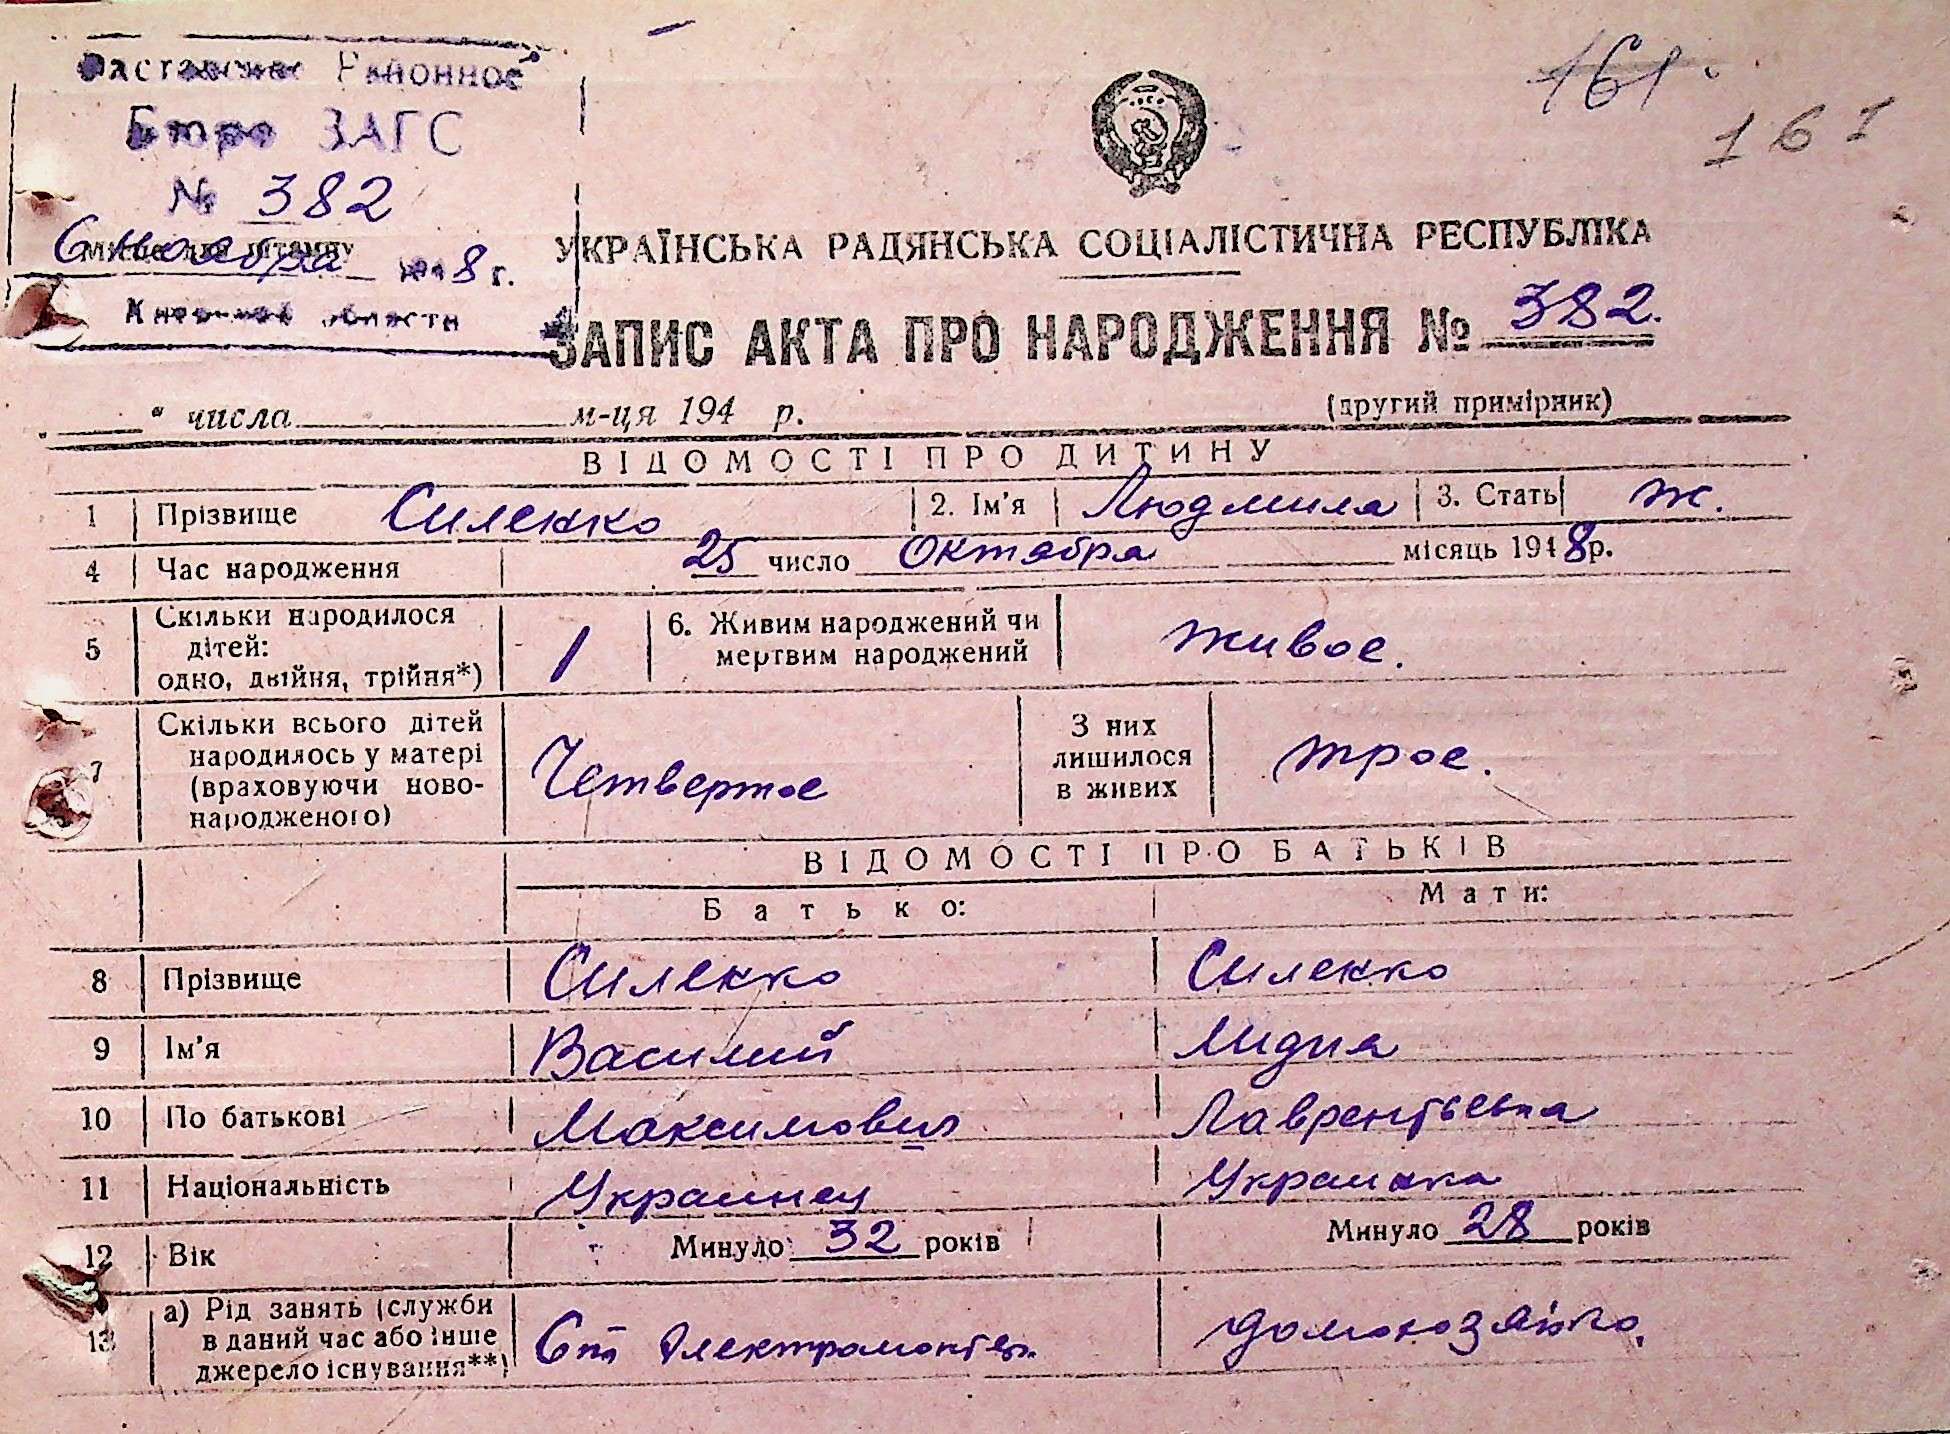 Районное
Бюро ЗАГС
№ 382
161.
161
6 ноября 1948 г.
Місце для штампу
области
УКРАЇНСЬКА РАДЯНСЬКА СОЦІАЛІСТИЧНА РЕСПУБЛІКА
ЗАПИС АКТА ПРО НАРОДЖЕННЯ № 382.
„ “ числа м-ця 194 р. (другий примірник)
ВІДОМОСТІ ПРО ДИТИНУ
1 Прізвище Силенко 2. Ім'я Людмила 3. Стать ж.
4 Час народження 25 число Октября місяць 1948р.
5 Скільки народилося дітей: одно, двійня, трійня*) 1 6. Живим народжений чи мертвим народжений живое.
7 Скільки всього дітей народилось у матері (враховуючи ново-народженого) Четвертое З них лишилося в живих трое.
ВІДОМОСТІ ПРО БАТЬКІВ
Батько: Мати:
8 Прізвище Силенко Силенко
9 Ім'я Василий Лидия
10 По батькові Максимович Лаврентьевна
11 Національність Украинец Украинка
12 Вік Минуло 32 років Минуло 28 років
13 а) Рід занять (служби в даний час або інше джерело існування**) Электромонтер. домохозяйка.